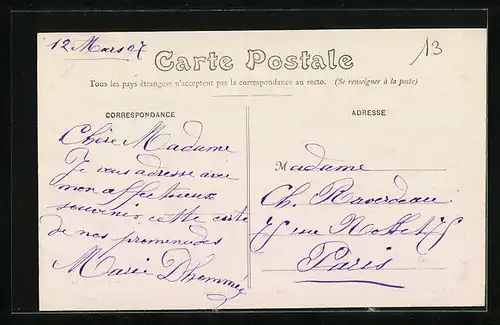 12 Mars 07
13
Carte Postale
Tous les pays étrangers n'acceptent pas la correspondance au recto. (Se renseigner à la poste)
CORRESPONDANCE
Chère Madame
Je vous adresse avec
mon affectueux
souvenir cette carte
de nos promenades
Marie Dhommée
ADRESSE
Madame
Ch.
75 rue 75
Paris